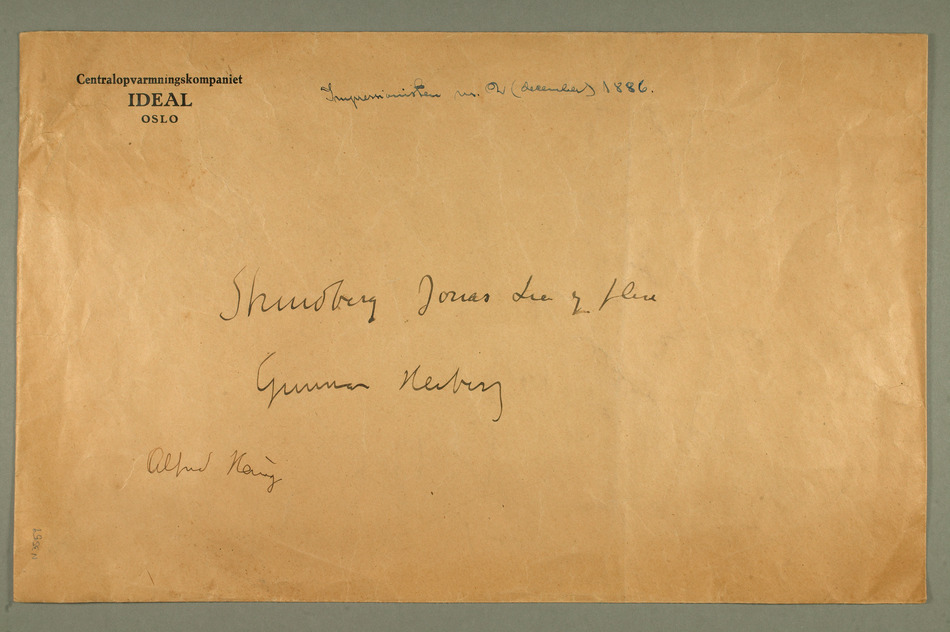 Centralopvarmningskompaniet
IDEAL
OSLO
Impressionisten nr. 2 (december) 1886.
Strindberg Jonas Lie og flere
Gunnar Heiberg
Alfred Hauge